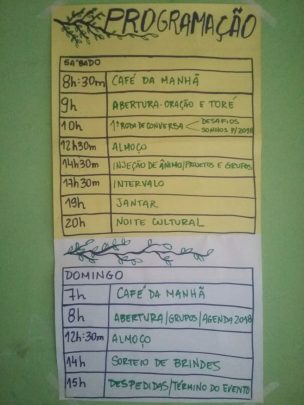 PROGRAMAÇÃO
SÁBADO
8h:30m CAFÉ DA MANHÃ
9h ABERTURA-ORAÇÃO E TORÉ
10h 1ª RODA DE CONVERSA DESAFIOS
SONHOS P/2018
12h30m ALMOÇO
14h30m INJEÇÃO DE ÂNIMO/PROJETOS E GRUPOS
17h30m INTERVALO
19h JANTAR
20h NOITE CULTURAL
DOMINGO
7h CAFÉ DA MANHÃ
8h ABERTURA/GRUPOS/AGENDA 2018
12h:30m ALMOÇO
14h SORTEIO DE BRINDES
15h DESPEDIDAS/TÉRMINO DO EVENTO